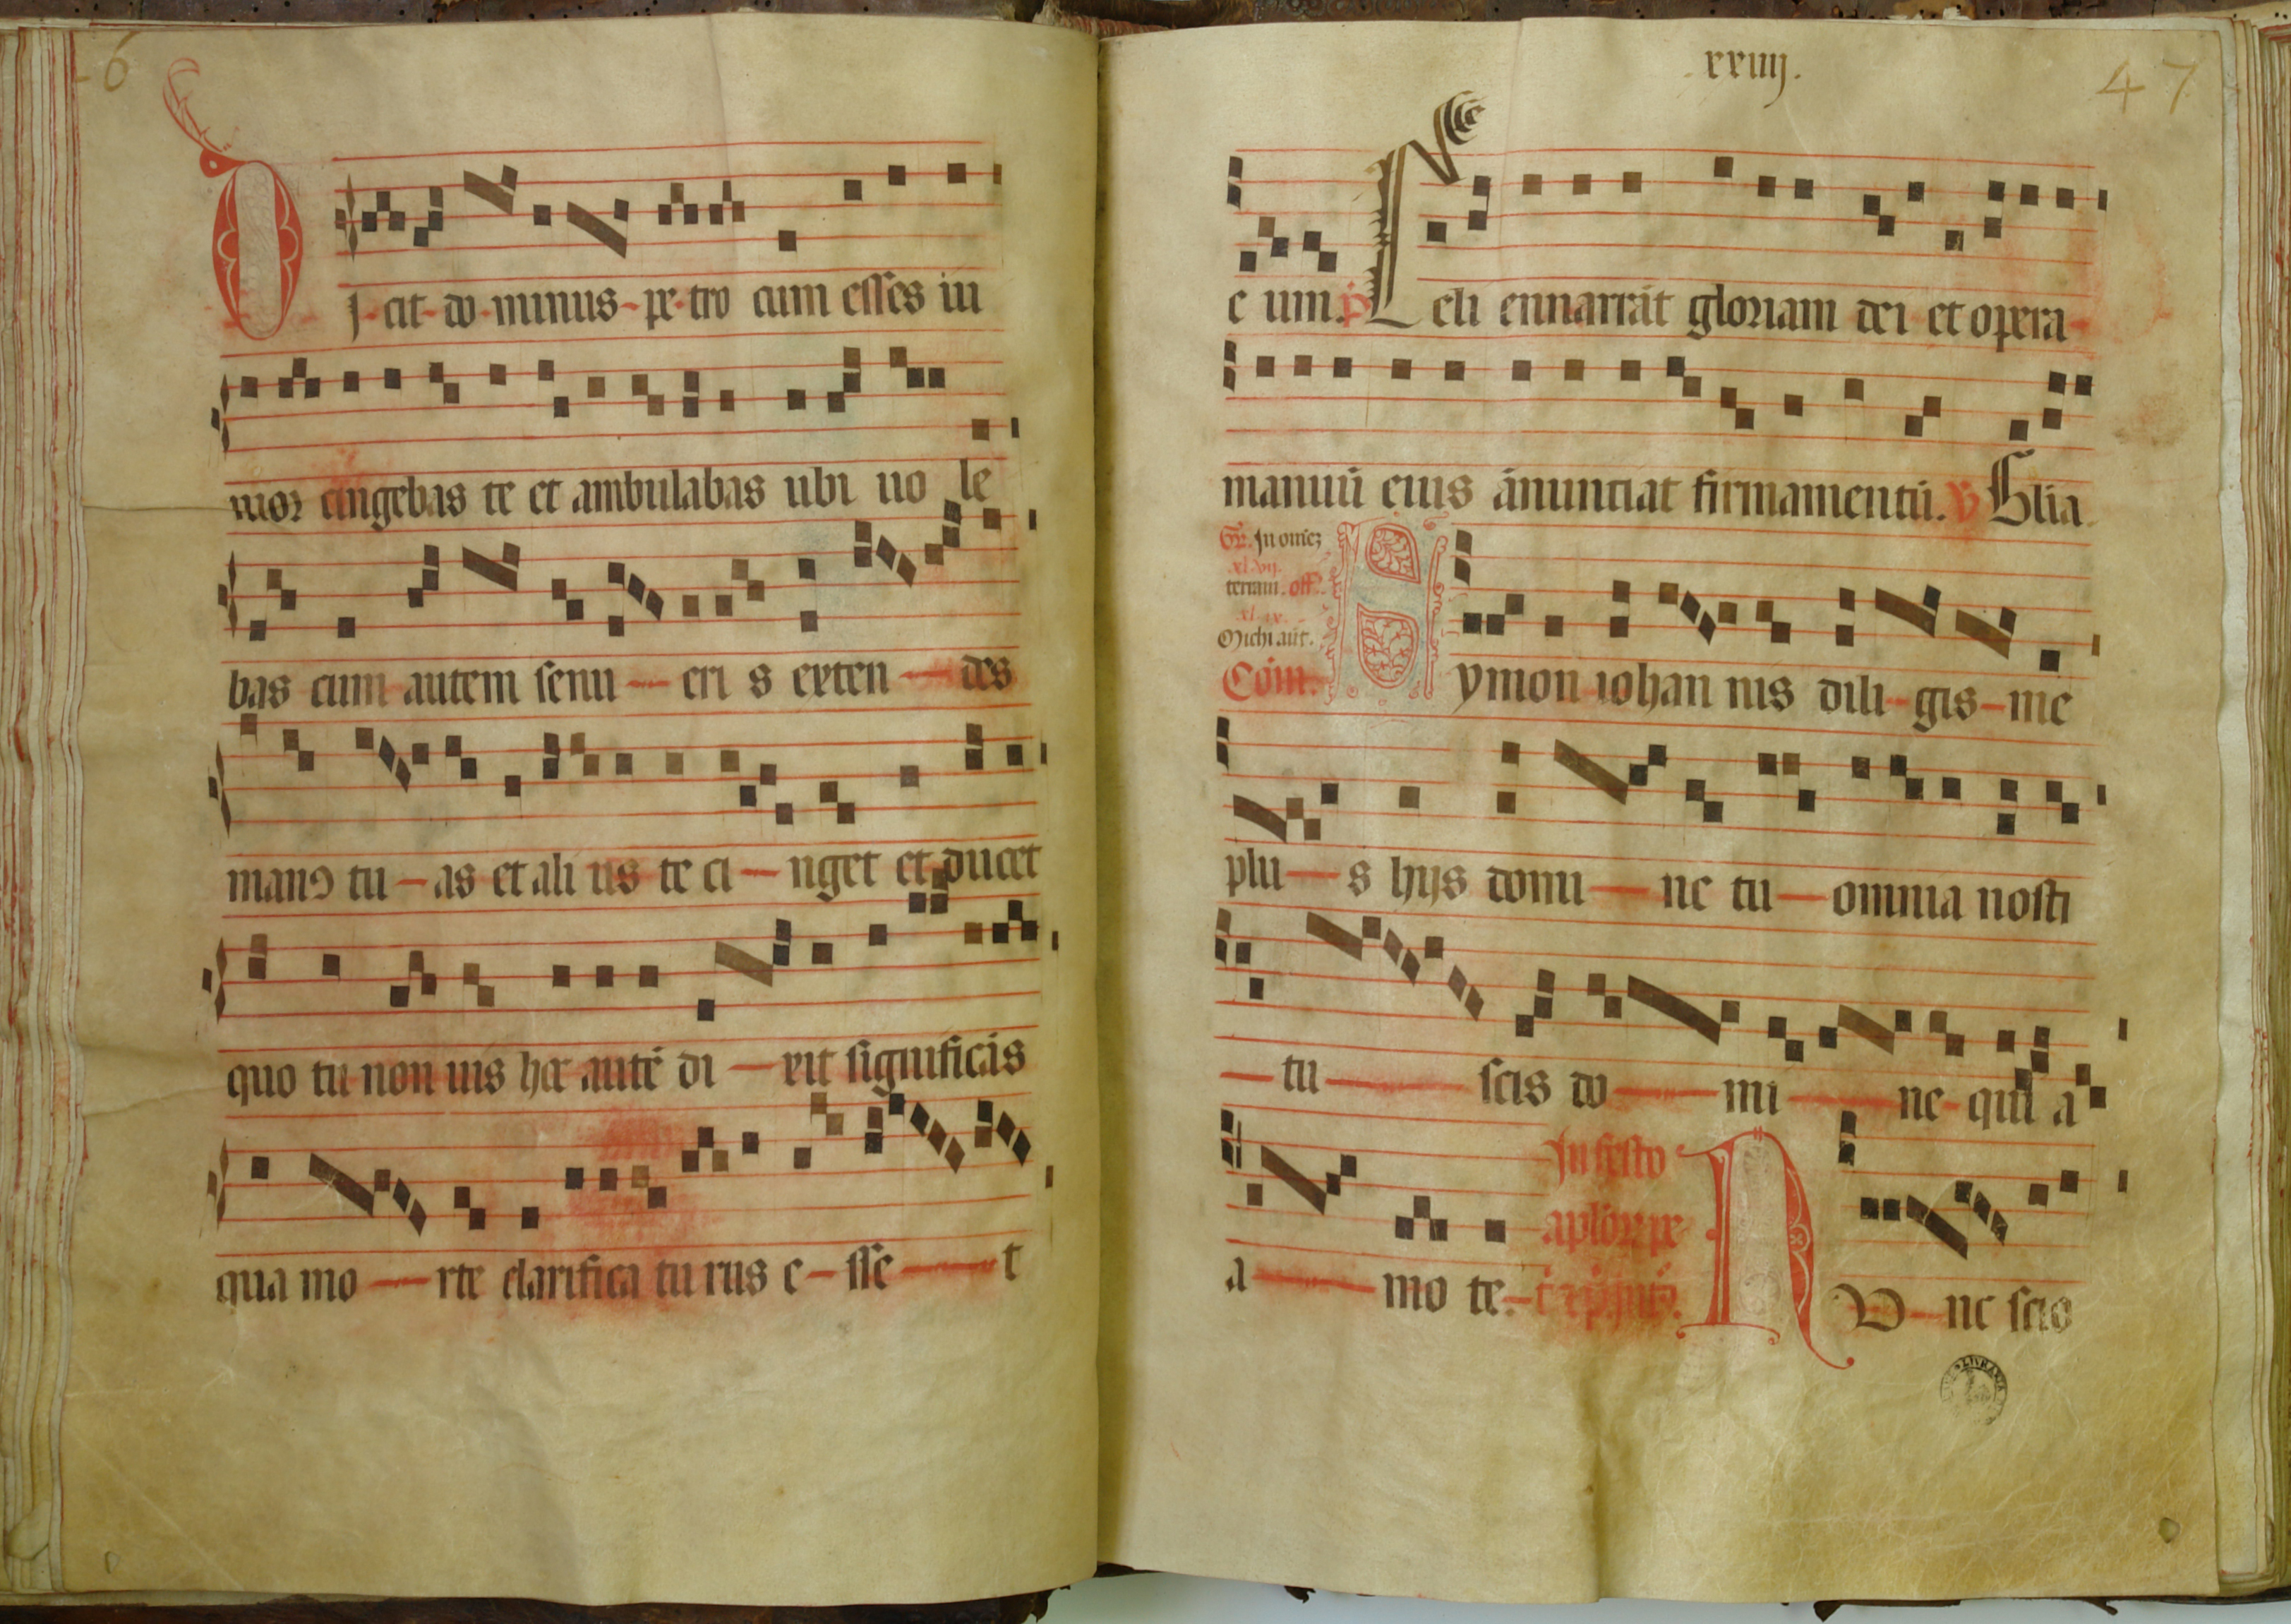 46
DJ-cit-do-minus-pe-tro cum esses iu
nior cingebas te et ambulabas ubi uo le
bas cum autem senu — eri s exten — des
manꝯ tu — as et ali us te ci — nget et ducet
quo tu non uis hoc autē di — xit significās
qua mo — rte clarifica tu rus e — sse — t
.xxiiij.
47
e um. p̄s Celi ennarrāt gloriam dei et opera
manuū eius ānunciat firmamentū. ℣ Glīa
Gr̄. In omēz
xlvij.
terram. off̄.
xl ix.
Michi aūt.
Cōm. Symon iohan nis dili-gis-me
plu — s hijs domi — ne tu — omnia nosti
— tu — scis do — mi — ne-qui a
a — mo te.
In festo
aplōꝝ pe-
t
NU-nc scio